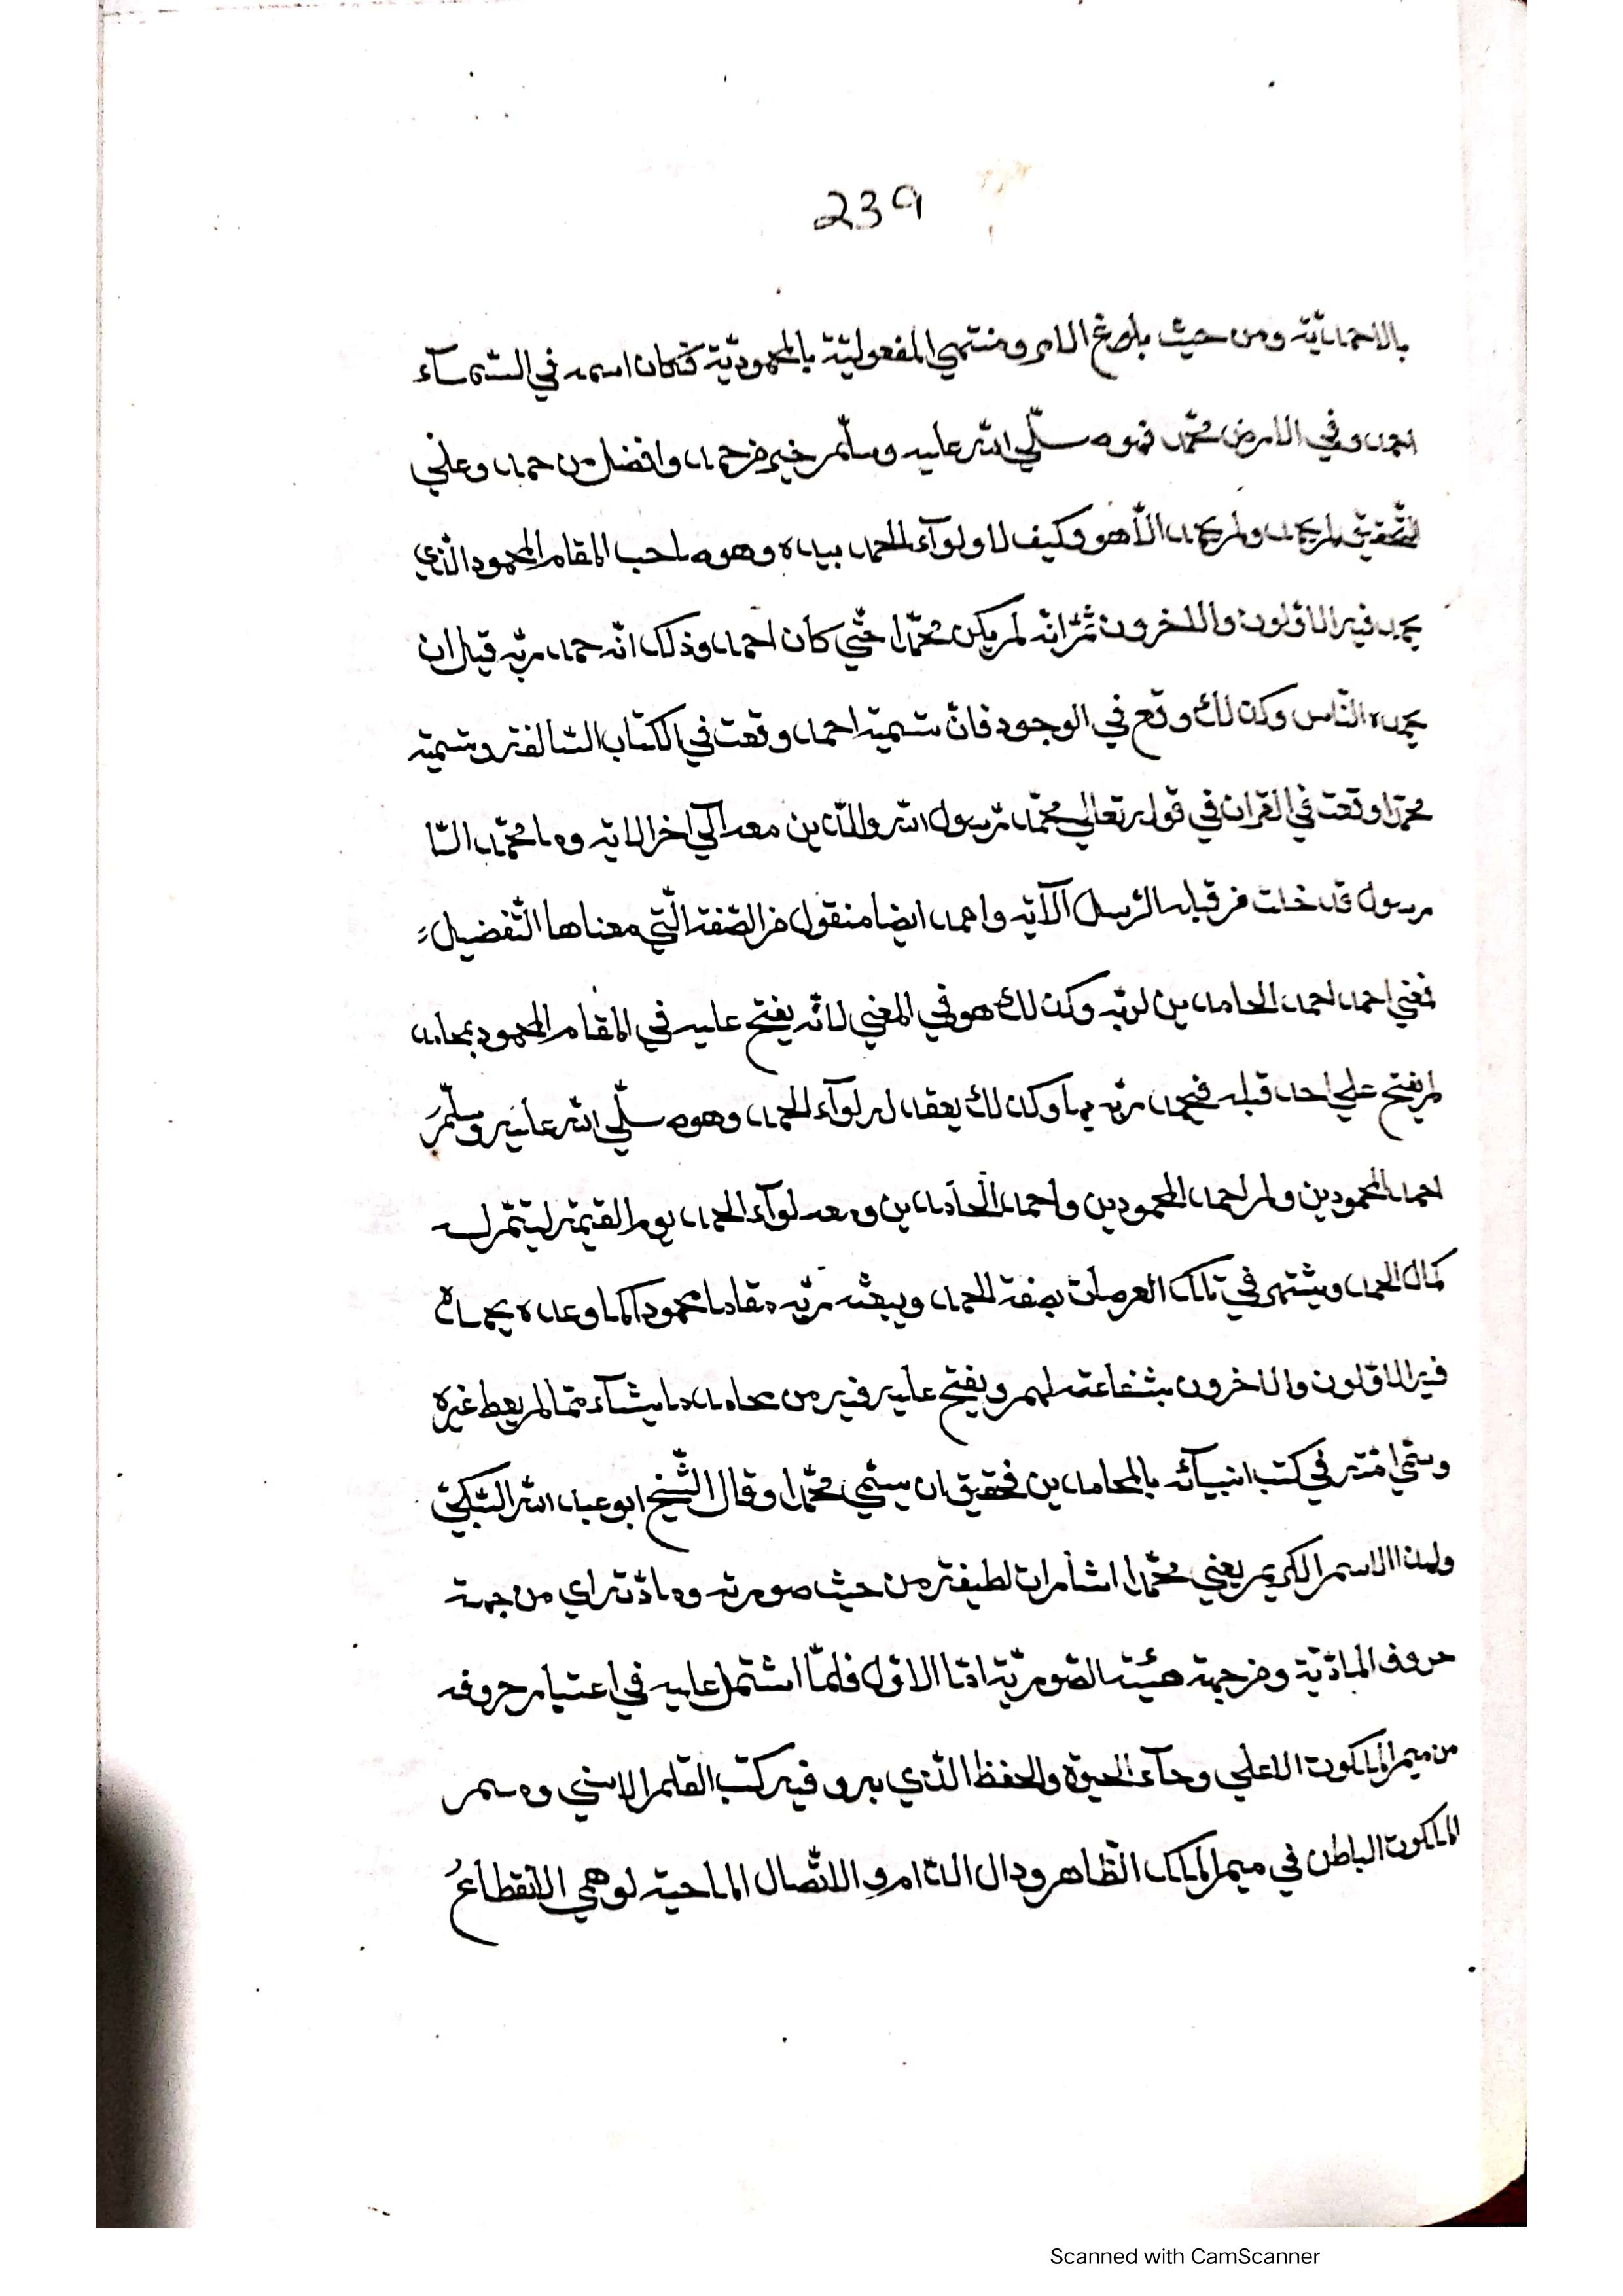 239
بالاحمديّة ومن حيث بلوغ الامر ومنتهي المفعوليّة بالمحموديّة فكان اسمه في السّمآء
احمد وفي الارض محمّد فهو صلّي الله عليه وسلّم خير من حمد وافضل من حمد وعلي
التّحقيق لم يحمد ولم يحمد الّا هو وكيف لا ولوآء الحمد بيده وهو صاحب المقام المحمود الّذي
يحمده فيه الاوّلون والاخرون ثمّ انّه لم يكن محمّدا حتّي كان احمد وذلك انّه حمد ربّه قبل ان
يحمده النّاس وكذلك وقع في الوجود فانّ تسميته احمد وقعت في الكتاب السّالفة وتسميته
محمّدا وقعت في القران في قوله تعالي محمّد رّسول الله والّذين معه الي اخر الاية وما محمّد الّا
رسول قد خلت من قبله الرّسل الآية واحمد ايضا منقول من الصّفة الّتي معناها التّفضيل
فمعني احمد احمد الحامدين لربّه وكذلك هو في المعني لانّه يفتح عليه في المقام المحمود بمحامد
لم يفتح علي احد قبله فيحمد ربّه بها وكذلك يعقد له لوآء الحمد وهو صلّي الله عليه وسلّم
احمد المحمودين ولم احمد المحمودين واحمد الحامدين ومعه لوآء الحمد يوم القيمة ليتمّ له
كمال الحمد ويشتهر في تلك العرصات بصفة الحمد ويبعثه ربّه مقاما محمودا كما وعده يحمده
فيه الاوّلون والاخرون بشفاعته لهم ويفتح عليه فيه من محامد ما يشآء ممّا لم يعط غيره
وسمّي امّته في كتب انبيآئه بالحامدين فحقيق ان يسمّي محمّدا وقال الشّيخ ابو عبد الله السّبكيّ
ولهذا الاسم الكريم يعني محمّدا اشارات لطيفة من حيث صورته ومادّته اي من جهة
حروف المادّيّة ومن جهة هيئته الصّوريّة امّا الاوّل فلمّا اشتمل عليه في اعتبار حروفه
من ميم الملكوت الاعلي وحآء الحيوة والحفظ الّذي به وفيه كتب القلم الاسني
الملكوت الباطن في ميم الملك الظّاهر ودال الدّوام والاتّصال الماحية لوهمي الانقطاع
Scanned with CamScanner